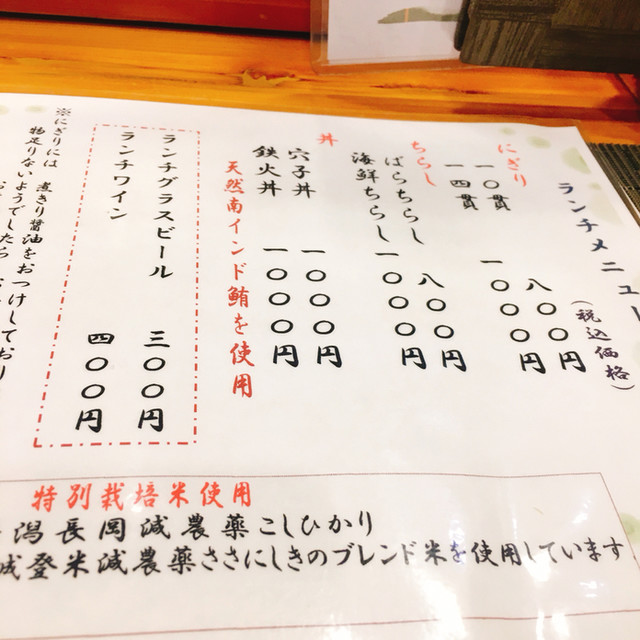 ランチメニュー
(税込価格)
にぎり
一〇貫 八〇〇円
一四貫 一〇〇〇円
ちらし
ばらちらし 八〇〇円
海鮮ちらし 一〇〇〇円
丼
穴子丼 一〇〇〇円
鉄火丼 一〇〇〇円
天然南インド鮪を使用
ランチグラスビール 三〇〇円
ランチワイン 四〇〇円
※にぎりには 煮きり醤油をおつけしており
物足りないようでしたら
特別栽培米使用
潟長岡減農薬こしひかり
城登米減農薬ささにしきのブレンド米を使用しています